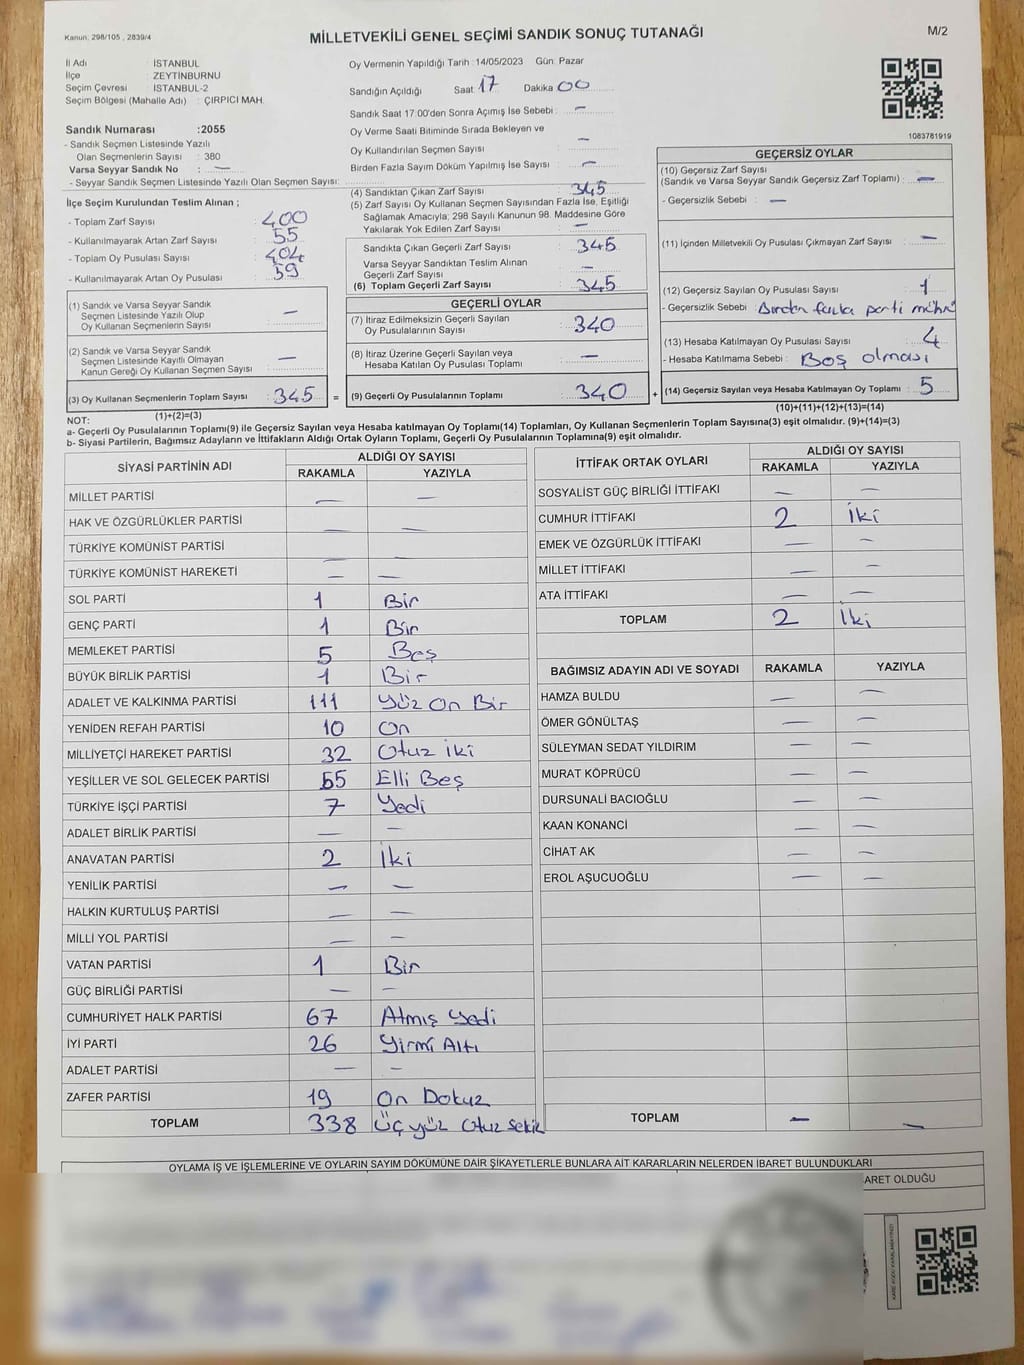 Kanun: 298/105 , 2839/4
MİLLETVEKİLİ GENEL SEÇİMİ SANDIK SONUÇ TUTANAĞI
M/2
İl Adı : İSTANBUL
İlçe : ZEYTİNBURNU
Seçim Çevresi : İSTANBUL-2
Seçim Bölgesi (Mahalle Adı) : ÇIRPICI MAH.
Sandık Numarası :2055
- Sandık Seçmen Listesinde Yazılı
Olan Seçmenlerin Sayısı : 380
Varsa Seyyar Sandık No : —
- Seyyar Sandık Seçmen Listesinde Yazılı Olan Seçmen Sayısı:
İlçe Seçim Kurulundan Teslim Alınan ;
- Toplam Zarf Sayısı : 400
- Kullanılmayarak Artan Zarf Sayısı : 55
- Toplam Oy Pusulası Sayısı : 404
- Kullanılmayarak Artan Oy Pusulası : 59
(1) Sandık ve Varsa Seyyar Sandık
Seçmen Listesinde Yazılı Olup
Oy Kullanan Seçmenlerin Sayısı : —
(2) Sandık ve Varsa Seyyar Sandık
Seçmen Listesinde Kayıtlı Olmayan
Kanun Gereği Oy Kullanan Seçmen Sayısı : —
(3) Oy Kullanan Seçmenlerin Toplam Sayısı : 345 =
(1)+(2)=(3)
Oy Vermenin Yapıldığı Tarih : 14/05/2023 Gün: Pazar
Sandığın Açıldığı Saat 17 Dakika 00
Sandık Saat 17:00'den Sonra Açımış İse Sebebi : —
Oy Verme Saati Bitiminde Sırada Bekleyen ve
Oy Kullandırılan Seçmen Sayısı : —
Birden Fazla Sayım Döküm Yapılmış İse Sayısı : —
(4) Sandıktan Çıkan Zarf Sayısı : 345
(5) Zarf Sayısı Oy Kullanan Seçmen Sayısından Fazla İse, Eşitliği
Sağlamak Amacıyla; 298 Sayılı Kanunun 98. Maddesine Göre
Yakılarak Yok Edilen Zarf Sayısı : —
Sandıkta Çıkan Geçerli Zarf Sayısı : 345
Varsa Seyyar Sandıktan Teslim Alınan
Geçerli Zarf Sayısı : —
(6) Toplam Geçerli Zarf Sayısı : 345
GEÇERLİ OYLAR
(7) İtiraz Edilmeksizin Geçerli Sayılan
Oy Pusulalarının Sayısı : 340
(8) İtiraz Üzerine Geçerli Sayılan veya
Hesaba Katılan Oy Pusulası Toplamı : —
(9) Geçerli Oy Pusulalarının Toplamı : 340 +
1083781919
GEÇERSİZ OYLAR
(10) Geçersiz Zarf Sayısı
(Sandık ve Varsa Seyyar Sandık Geçersiz Zarf Toplamı) : —
- Geçersizlik Sebebi : —
(11) İçinden Milletvekili Oy Pusulası Çıkmayan Zarf Sayısı : —
(12) Geçersiz Sayılan Oy Pusulası Sayısı : 1
- Geçersizlik Sebebi : Birden fazla parti mührü
(13) Hesaba Katılmayan Oy Pusulası Sayısı : 4
- Hesaba Katılmama Sebebi : Boş olması
(14) Geçersiz Sayılan veya Hesaba Katılmayan Oy Toplamı : 5
(10)+(11)+(12)+(13)=(14)
NOT:
a- Geçerli Oy Pusulalarının Toplamı(9) ile Geçersiz Sayılan veya Hesaba katılmayan Oy Toplamı(14) Toplamları, Oy Kullanan Seçmenlerin Toplam Sayısına(3) eşit olmalıdır. (9)+(14)=(3)
b- Siyasi Partilerin, Bağımsız Adayların ve İttifakların Aldığı Ortak Oyların Toplamı, Geçerli Oy Pusulalarının Toplamına(9) eşit olmalıdır.
SİYASİ PARTİNİN ADI ALDIĞI OY SAYISI
RAKAMLA YAZIYLA
MİLLET PARTİSİ — —
HAK VE ÖZGÜRLÜKLER PARTİSİ — —
TÜRKİYE KOMÜNİST PARTİSİ — —
TÜRKİYE KOMÜNİST HAREKETİ — —
SOL PARTİ 1 Bir
GENÇ PARTİ 1 Bir
MEMLEKET PARTİSİ 5 Beş
BÜYÜK BİRLİK PARTİSİ 1 Bir
ADALET VE KALKINMA PARTİSİ 111 Yüz On Bir
YENİDEN REFAH PARTİSİ 10 On
MİLLİYETÇİ HAREKET PARTİSİ 32 Otuz İki
YEŞİLLER VE SOL GELECEK PARTİSİ 55 Elli Beş
TÜRKİYE İŞÇİ PARTİSİ 7 Yedi
ADALET BİRLİK PARTİSİ — —
ANAVATAN PARTİSİ 2 İki
YENİLİK PARTİSİ — —
HALKIN KURTULUŞ PARTİSİ — —
MİLLİ YOL PARTİSİ — —
VATAN PARTİSİ 1 Bir
GÜÇ BİRLİĞİ PARTİSİ — —
CUMHURİYET HALK PARTİSİ 67 Atmış Yedi
İYİ PARTİ 26 Yirmi Altı
ADALET PARTİSİ — —
ZAFER PARTİSİ 19 On Dokuz
TOPLAM 338 Üç yüz Otuz Sekik
İTTİFAK ORTAK OYLARI ALDIĞI OY SAYISI
RAKAMLA YAZIYLA
SOSYALİST GÜÇ BİRLİĞİ İTTİFAKI — —
CUMHUR İTTİFAKI 2 İki
EMEK VE ÖZGÜRLÜK İTTİFAKI — —
MİLLET İTTİFAKI — —
ATA İTTİFAKI — —
TOPLAM 2 İki
BAĞIMSIZ ADAYIN ADI VE SOYADI RAKAMLA YAZIYLA
HAMZA BULDU — —
ÖMER GÖNÜLTAŞ — —
SÜLEYMAN SEDAT YILDIRIM — —
MURAT KÖPRÜCÜ — —
DURSUNALİ BACIOĞLU — —
KAAN KONANCİ — —
CİHAT AK — —
EROL AŞUCUOĞLU — —
TOPLAM — —
OYLAMA İŞ VE İŞLEMLERİNE VE OYLARIN SAYIM DÖKÜMÜNE DAİR ŞİKAYETLERLE BUNLARA AİT KARARLARIN NELERDEN İBARET BULUNDUKLARI
ARET OLDUĞU